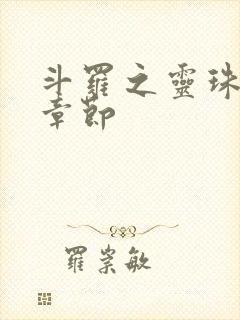 斗羅之靈珠
章節
羅崇敏